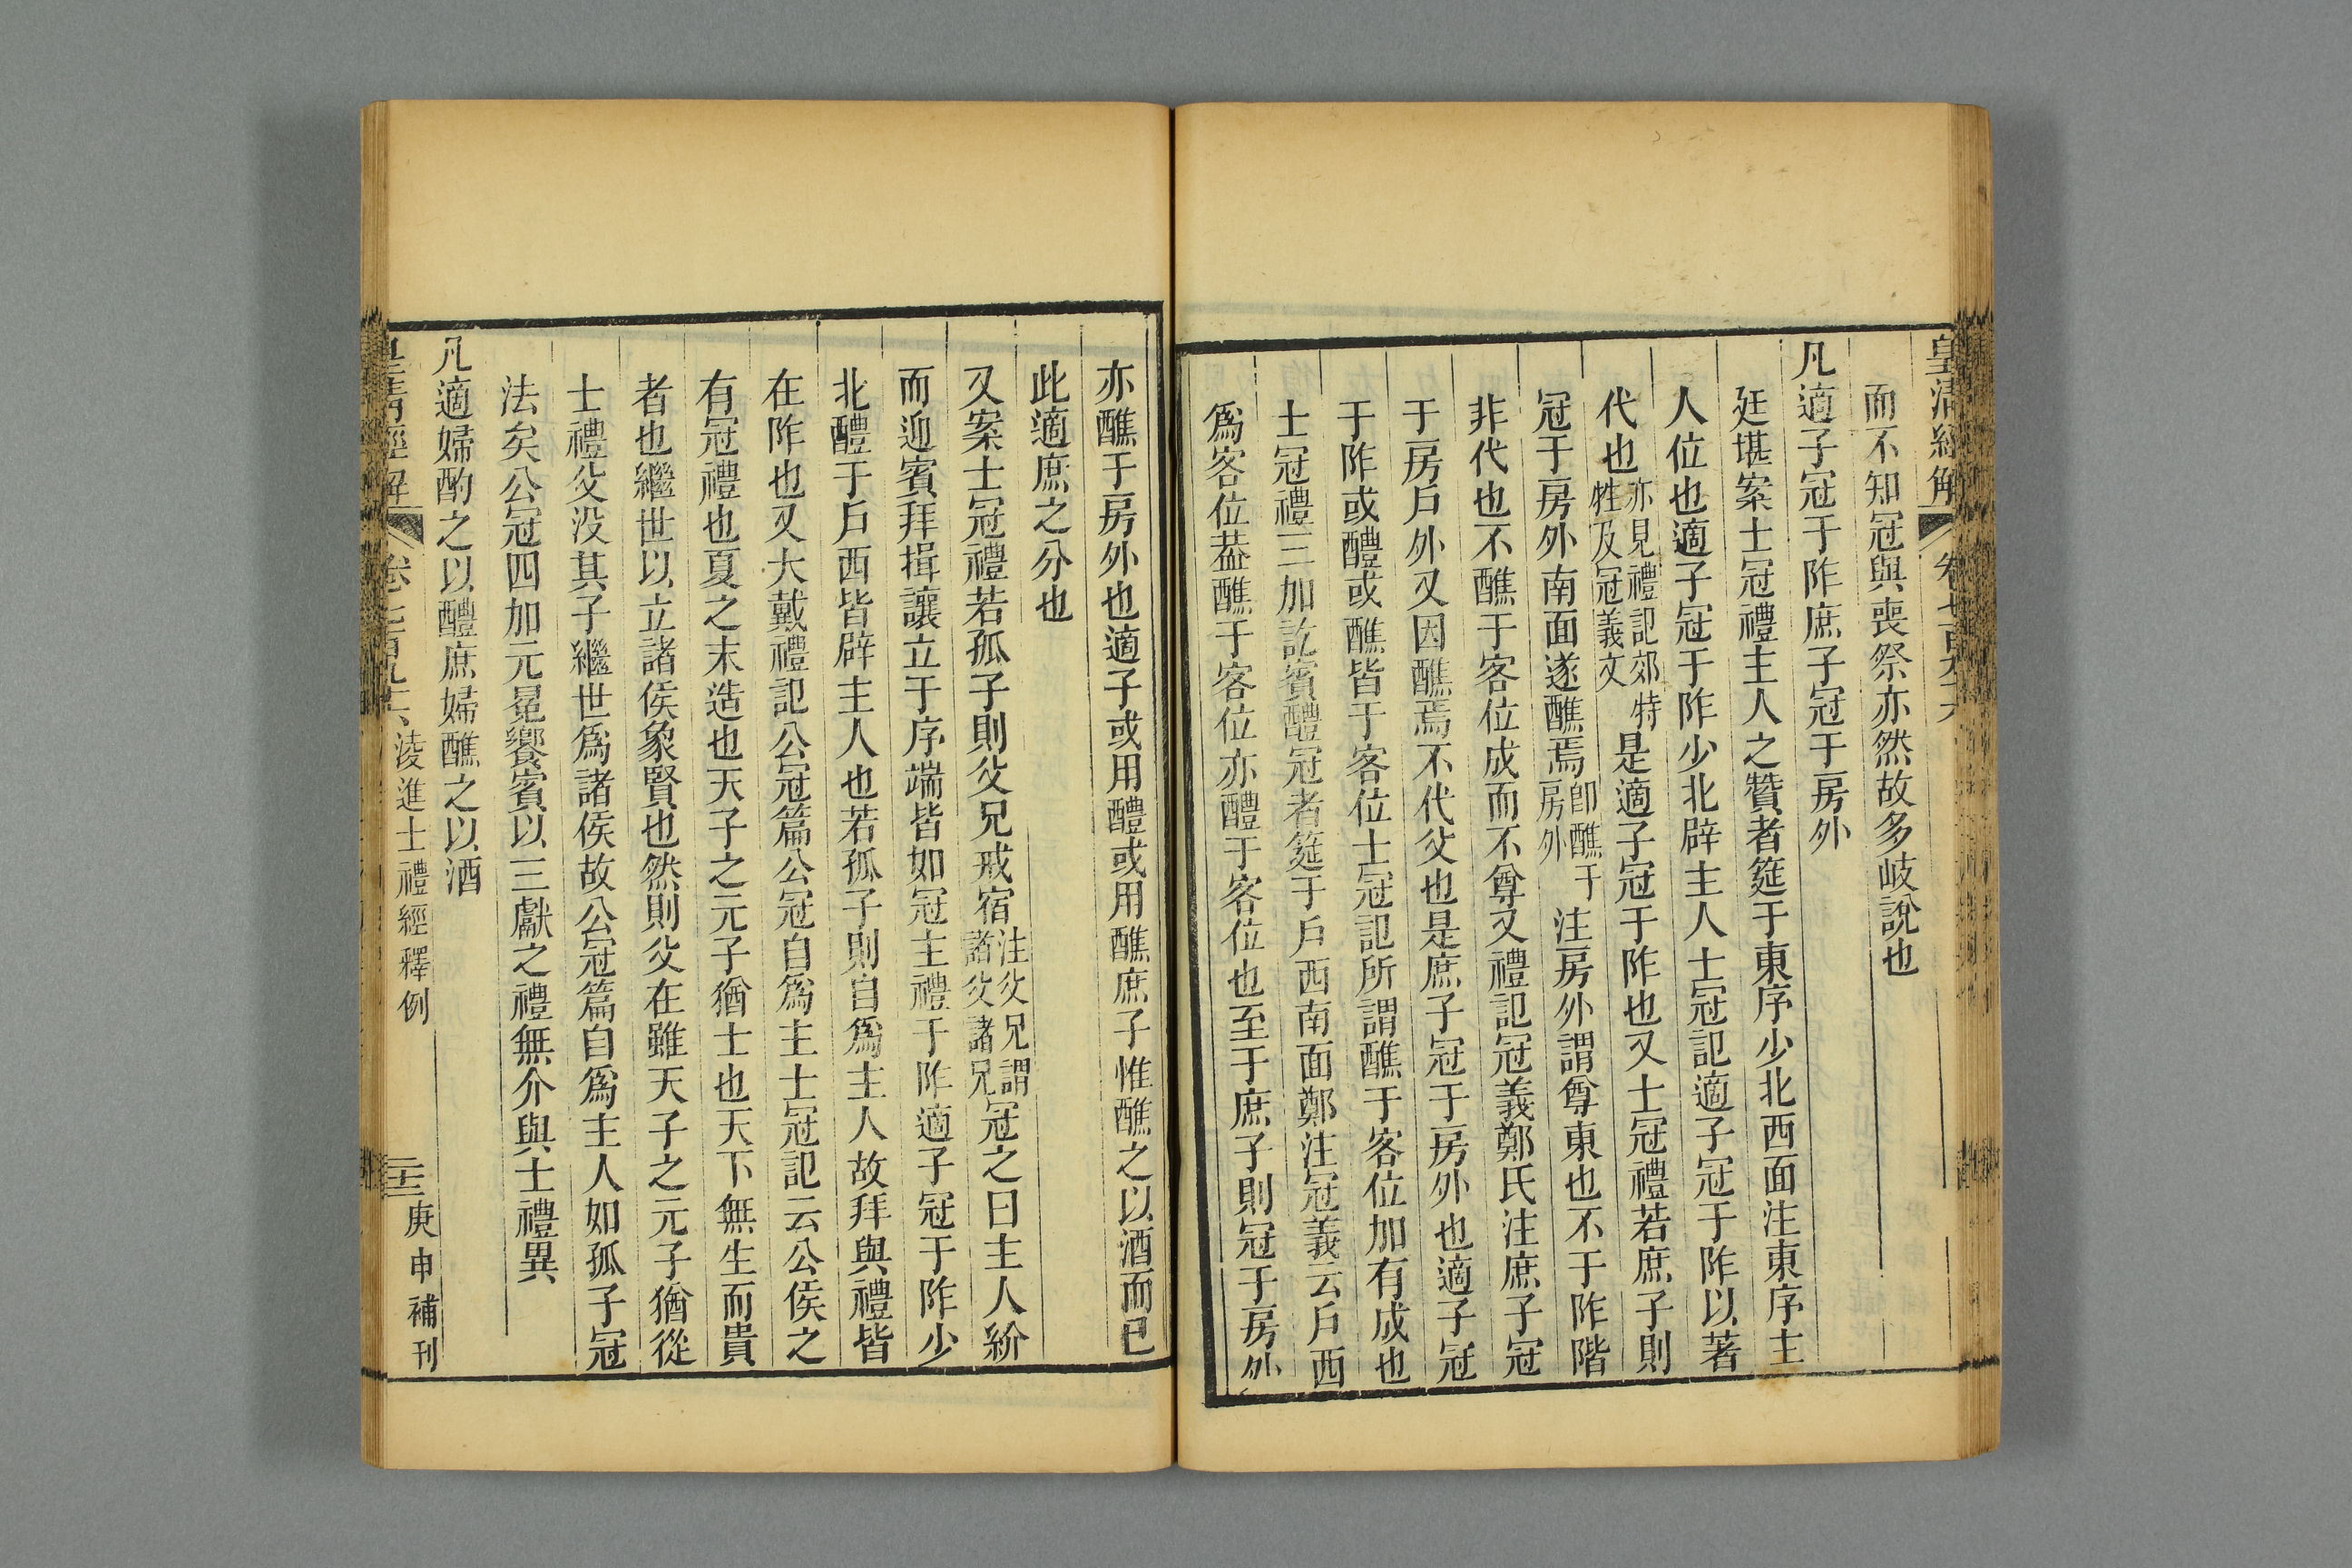 皇清經解
而不知冠與喪祭亦然故多岐說也
凡適子冠于阼庶子冠于房外
廷堪案士冠禮主人之贊者筵于東序少北西面注東序主
人位也適子冠于阼少北辟主人士冠記適子冠于阼以著
代也亦見禮記郊特牲及冠義文是適子冠于阼也又士冠禮若庶子則
冠于房外南面遂醮焉卽醮于房外注房外謂尊東也不于阼階
非代也不醮于客位成而不尊又禮記冠義鄭氏注庶子冠
于房戶外又因醮焉不代父也是庶子冠于房外也適子冠
于阼或醴或醮皆于客位士冠記所謂醮于客位加有成也
士冠禮三加訖賓醴冠者筵于戶西南面鄭注冠義云戶西
爲客位葢醮于客位亦醴于客位也至于庶子則冠于房外
亦醮于房外也適子或用醴或用醮庶子惟醮之以酒而已
此適庶之分也
又案士冠禮若孤子則父兄戒宿注父兄謂諸父諸兄冠之日主人紒
而迎賓拜揖讓立于序端皆如冠主禮于阼適子冠于阼少
北醴于戶西皆辟主人也若孤子則自爲主人故拜與禮皆
在阼也又大戴禮記公冠篇公冠自爲主士冠記云公侯之
有冠禮也夏之末造也天子之元子猶士也天下無生而貴
者也繼世以立諸侯象賢也然則父在雖天子之元子猶從
士禮父没其子繼世爲諸侯故公冠篇自爲主人如孤子冠
法矣公冠四加元冕饗賓以三獻之禮無介與士禮異
凡適婦酌之以醴庶婦醮之以酒
皇清經解 卷七百九十六 淩進士禮經釋例 庚申補刊